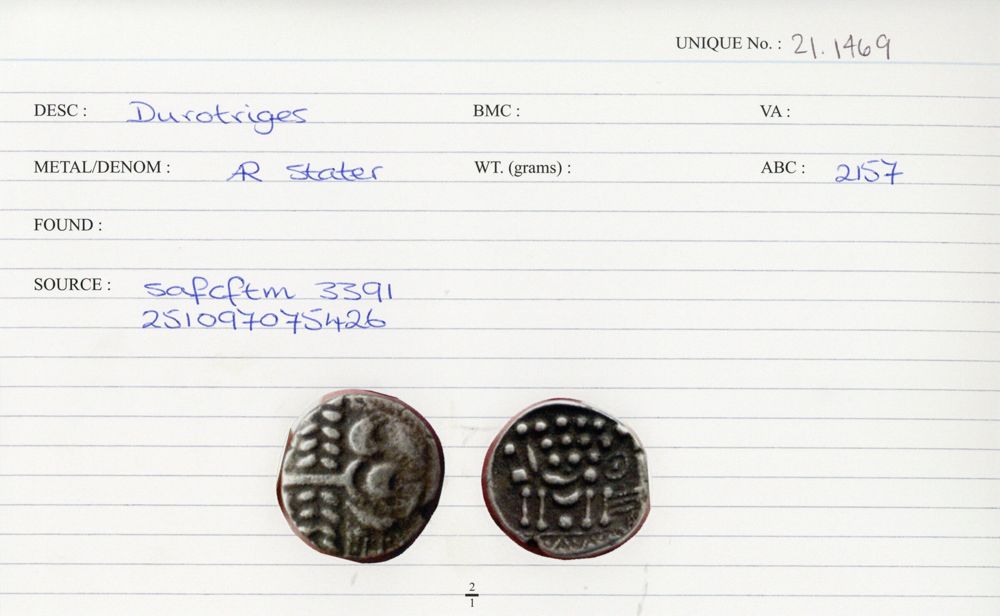 UNIQUE No. : 21.1469
DESC : Durotriges BMC : VA :
METAL/DENOM : AR Stater WT. (grams) : ABC : 2157
FOUND :
SOURCE : safcftm 3391
251097075426
2
1